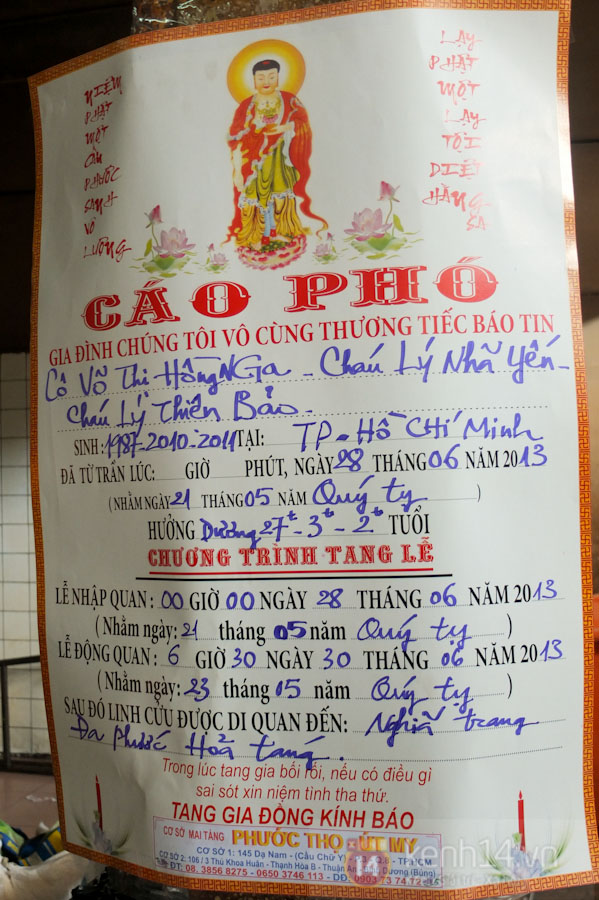 NIỆM
PHẬT
MỘT
CÂU
PHƯỚC
SANH
VÔ
LƯỢNG
LẠY
PHẬT
MỘT
LẠY
TỘI
DIỆT
HẰNG
SA
CÁO PHÓ
GIA ĐÌNH CHÚNG TÔI VÔ CÙNG THƯƠNG TIẾC BÁO TIN
Cô Võ Thi Hồng NGa - Cháu Lý Nhã Yến -
Cháu Lý Thiên Bảo -
SINH: 1987-2010-2011 TẠI: TP - Hồ CHí Minh
ĐÃ TỪ TRẦN LÚC: GIỜ PHÚT, NGÀY 28 THÁNG 06 NĂM 2013
(NHẰM NGÀY 21 THÁNG 05 NĂM Quý tỵ )
HƯỞNG Dương 27t - 3t - 2t TUỔI
CHƯƠNG TRÌNH TANG LỄ
LỄ NHẬP QUAN: 00 GIỜ 00 NGÀY 28 THÁNG 06 NĂM 2013
(Nhằm ngày: 21 tháng 05 năm Quý tỵ )
LỄ ĐỘNG QUAN: 6 GIỜ 30 NGÀY 30 THÁNG 06 NĂM 2013
(Nhằm ngày: 23 tháng 05 năm Quý tỵ )
SAU ĐÓ LINH CỬU ĐƯỢC DI QUAN ĐẾN: Nghĩa trang
Đa Phước Hoả táng.
Trong lúc tang gia bối rối, nếu có điều gì
sai sót xin niệm tình tha thứ.
TANG GIA ĐỒNG KÍNH BÁO
CƠ SỞ MAI TÁNG PHƯỚC THỌ - ÚT MY
CƠ SỞ 1: 145 Dạ Nam - (Cầu Chữ Y) TP.HCM
CƠ SỞ 2: 106/3 Thủ Khoa Huân - Thạnh Hòa B - Thuận An Dương (Búng)
ĐT: 08. 3856 8275 - 0650 3746 113 - DĐ: 0903 73 74 72
14 kenh14.vn